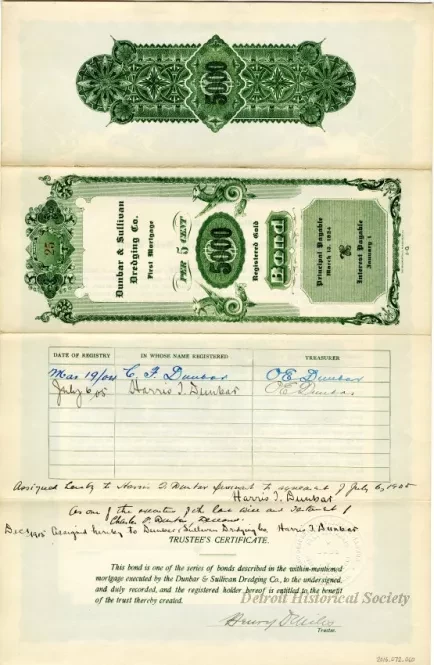 5000
25
Dunbar & Sullivan
Dredging Co.
First Mortgage
PER 5 CENT
5000
Registered Gold
Bond
Principal Payable
March 12, 1924
Interest Payable
January 1
DATE OF REGISTRY
IN WHOSE NAME REGISTERED
TREASURER
Mar 19/04 C. F. Dunbar O E Dunbar
July 6, 05 Harris T. Dunbar O E Dunbar
Assigned hereby to Harris T. Dunbar pursuant to agreement of July 6, 1905
Harris T. Dunbar
As one of the executors of the last will and testament of
Charles F. Dunbar, Deceased.
Assigned hereby to Dunbar & Sullivan Dredging Co. Harris T. Dunbar
TRUSTEE'S CERTIFICATE.
This bond is one of the series of bonds described in the within-mentioned
mortgage executed by the Dunbar & Sullivan Dredging Co., to the undersigned,
and duly recorded, and the registered holder hereof is entitled to the benefit
of the trust thereby created.
Henry
Trustee.
Detroit Historical Society